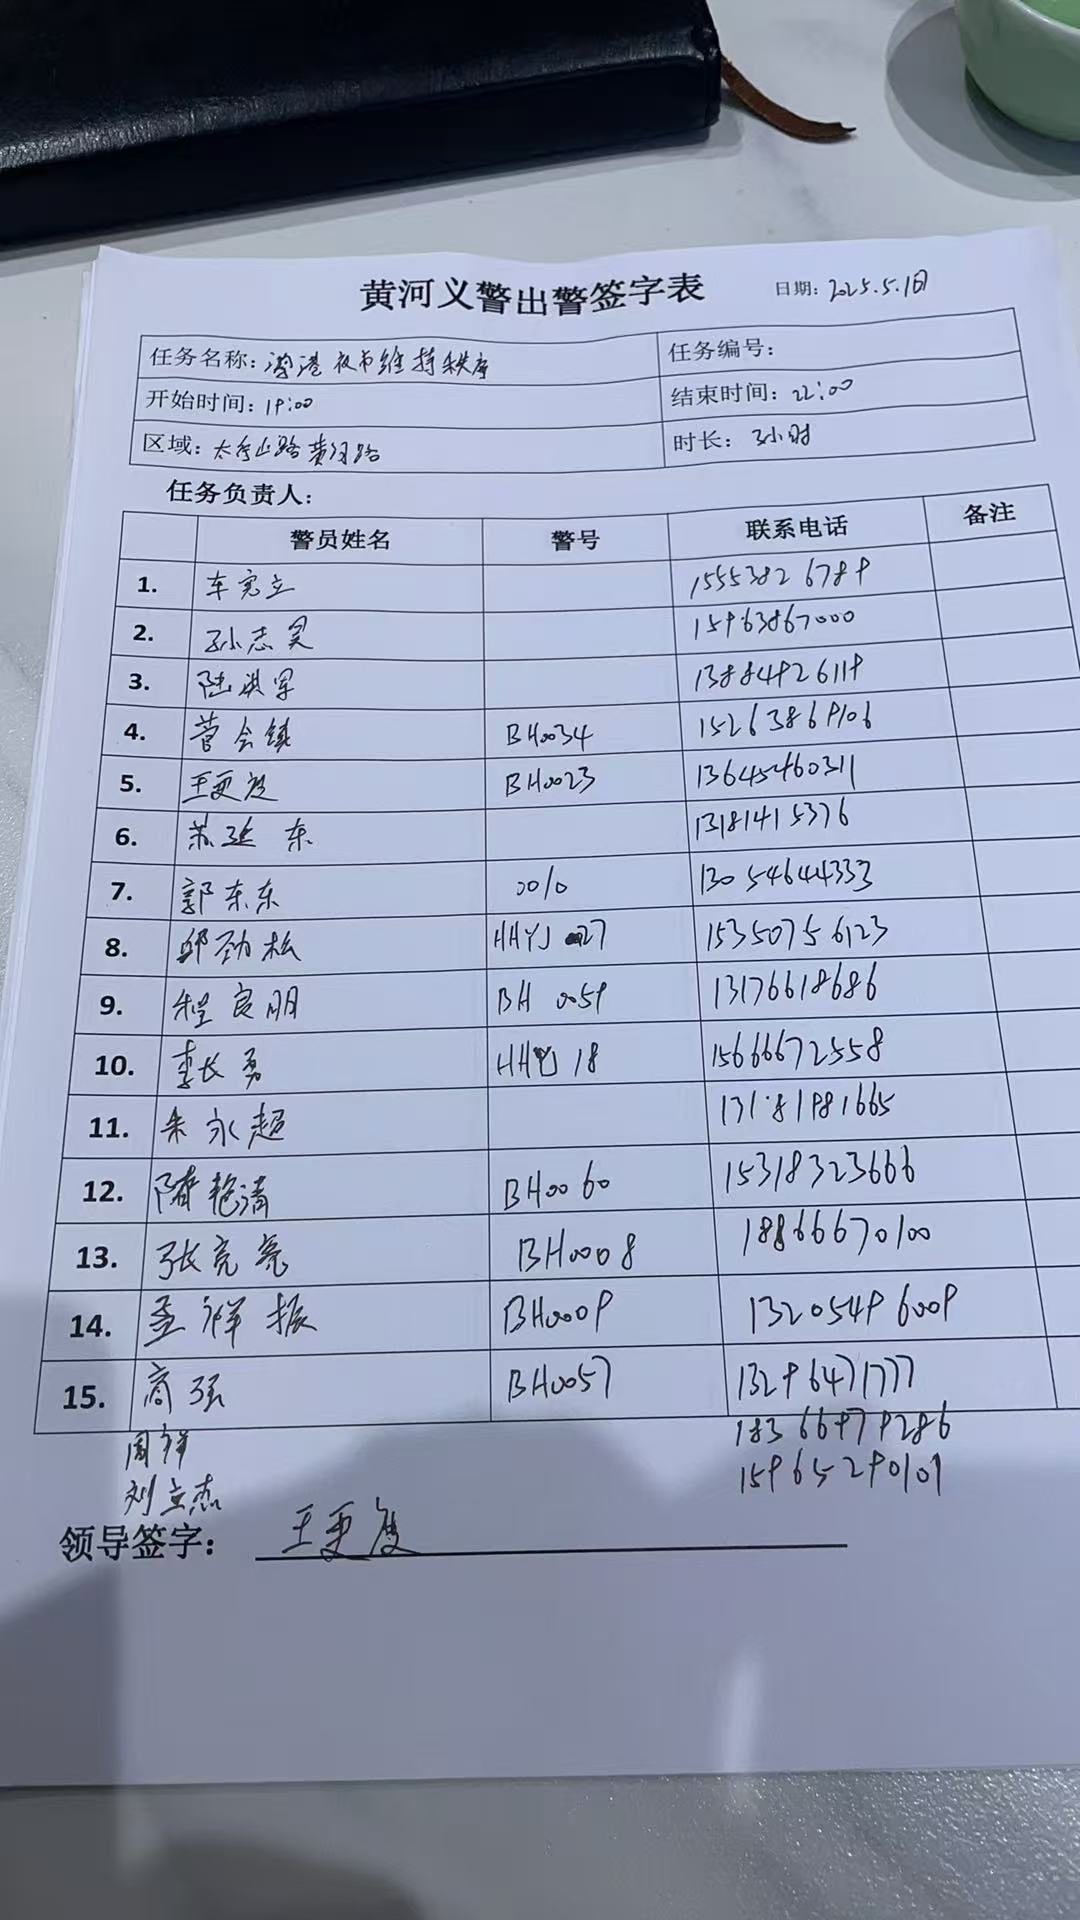 黄河义警出警签字表 日期: 2025.5.1日
任务名称: 湾港夜市维持秩序 任务编号:
开始时间: 19:00 结束时间: 22:00
区域: 太行山路黄河路 时长: 3小时
任务负责人:
警员姓名 警号 联系电话 备注
1. 车宪立 15553826789
2. 孙志昊 15963867000
3. 陆洪军 13884926119
4. 菅会镇 BH0034 15263869106
5. 王更度 BH0023 13645460311
6. 苏延东 13181415376
7. 郭东东 0010 13054644333
8. 邱劲松 HHYJ 27 15350756123
9. 程良朋 BH 0059 13176618686
10. 李长勇 HHYJ 18 15666672558
11. 朱永超 13181981665
12. 隋艳清 BH0060 15318323666
13. 张亮亮 BH0008 18866670100
14. 孟祥振 BH0009 13205496009
15. 商强 BH0057 13296471777
周祥 18366979286
刘立杰 15965290101
领导签字: 王更度